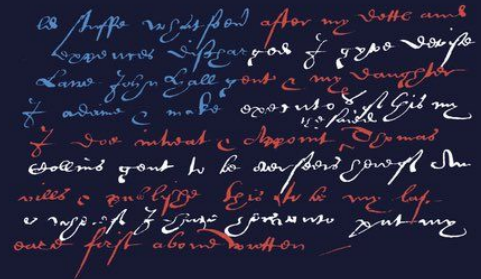 stuffe whatsoever after my debts and
expences dischargd I gyve devise
Lawe John Hall gent & my daughter
I ordaine & make executors of this my
the saied
I doe intreat & Appoint Thomas
Collins gent to be overseers hereof And
wills & publishe this to be my last
I have hereunto put my
eare first above written